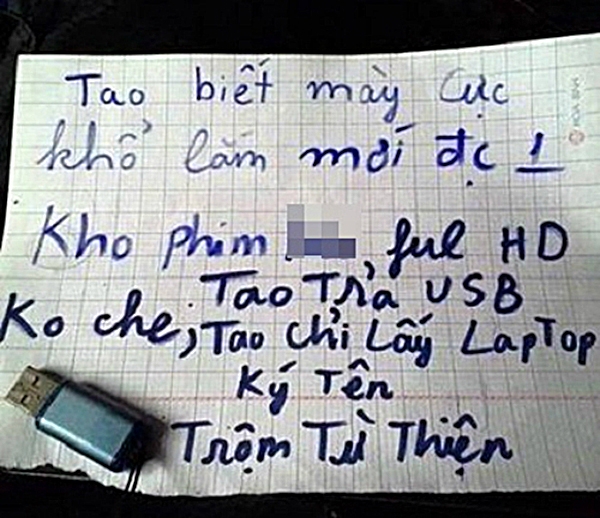 Tao biết mày cực
khổ lắm mới đc 1
Kho phim , ful HD
Ko che, Tao Trả USB
Tao chỉ lấy LapTop
Ký Tên
Trộm Từ Thiện